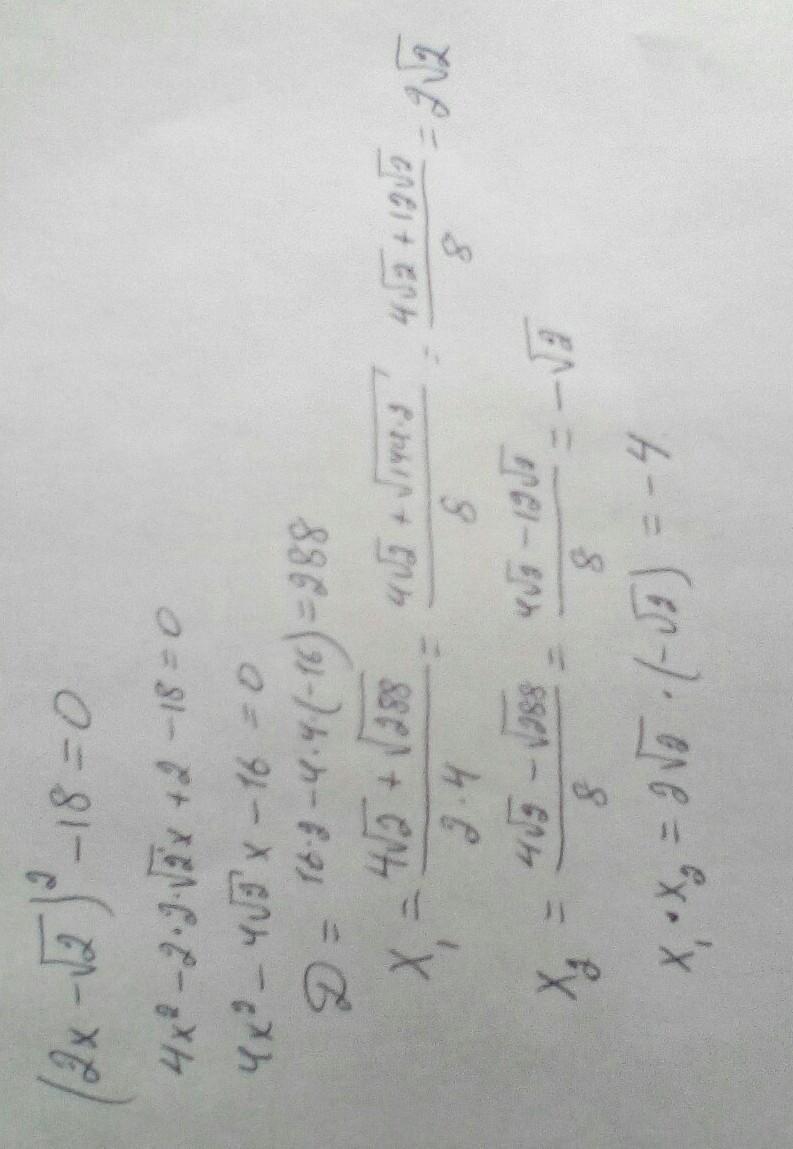 (2x - √2)² - 18 = 0
4x² - 2·2·√2x + 2 - 18 = 0
4x² - 4√2 x - 16 = 0
D = 16·2 - 4·4·(-16) = 288
x₁ = (4√2 + √288)/(2·4) = (4√2 + √144·2)/8 = (4√2 + 12√2)/8 = 2√2
x₂ = (4√2 - √288)/8 = (4√2 - 12√2)/8 = -√2
x₁ · x₂ = 2√2 · (-√2) = -4